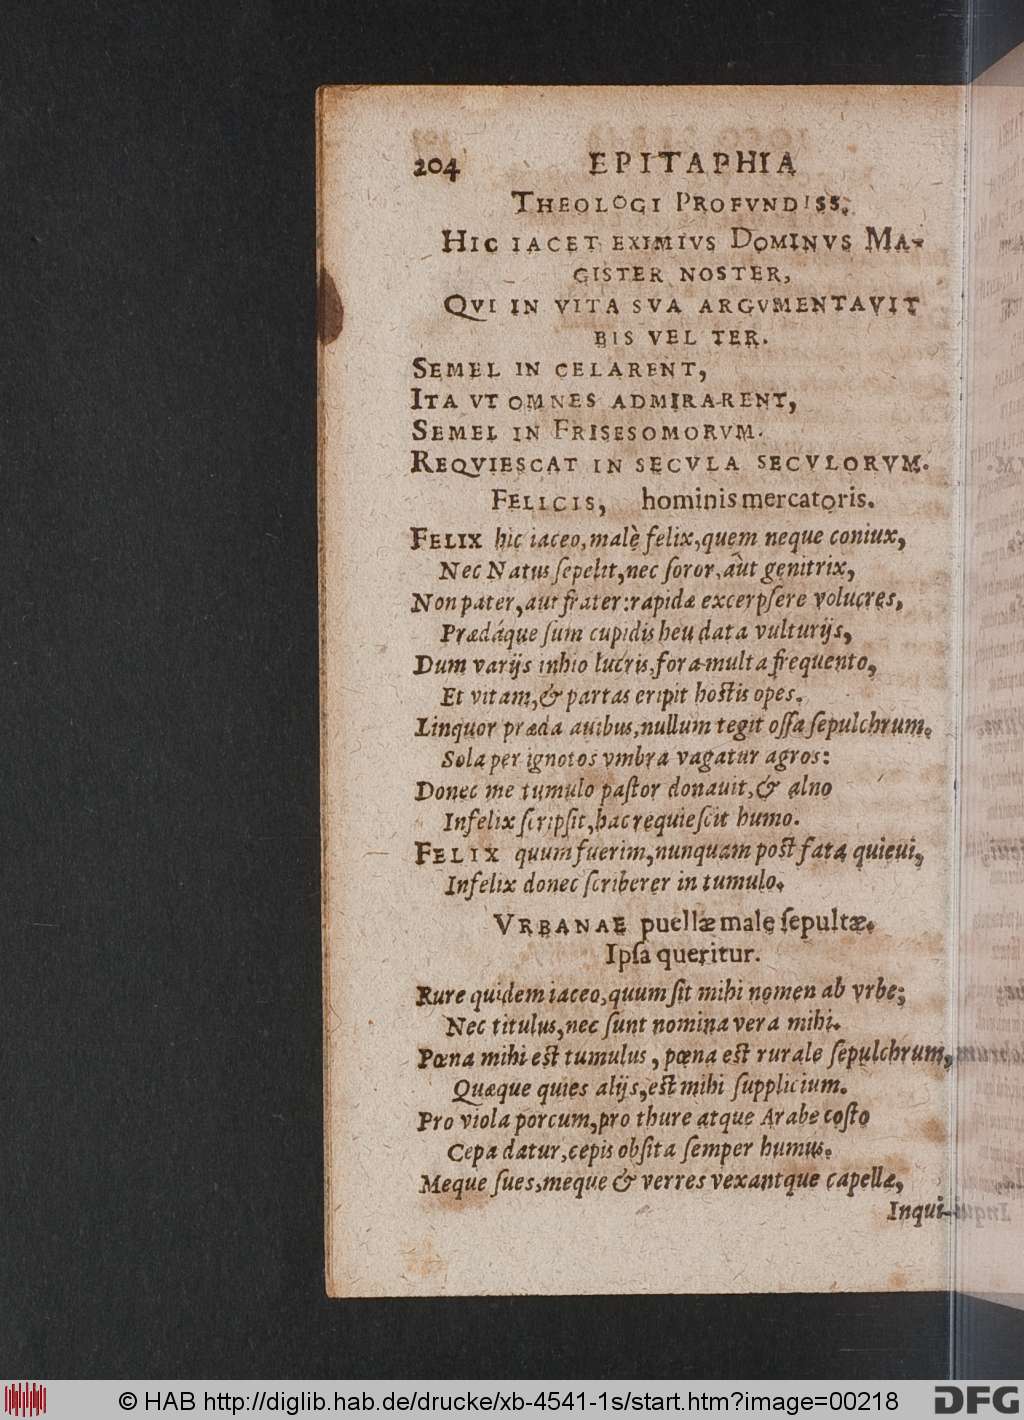 204 EPITAPHIA
THEOLOGI PROFVNDISS.
HIC IACET EXIMIVS DOMINVS MA-
GISTER NOSTER,
QVI IN VITA SVA ARGVMENTAVIT
BIS VEL TER.
SEMEL IN CELARENT,
ITA VT OMNES ADMIRARENT,
SEMEL IN FRISESOMORVM.
REQVIESCAT IN SECVLA SECVLORVM.
FELICIS, hominis mercatoris.
FELIX hic iaceo, malè felix, quem neque coniux,
Nec Natus ſepelit, nec ſoror, aut genitrix,
Non pater, aut frater: rapidæ excerpſere volucres,
Prædáque ſum cupidis heu data vulturijs,
Dum varijs inhio lucris, fora multa frequento,
Et vitam, & partas eripit hostis opes.
Linquor præda auibus, nullum tegit oſſa ſepulchrum.
Sola per ignotos vmbra vagatur agros:
Donec me tumulo paſtor donauit, & alno
Infelix ſcripſit, hac requieſcit humo.
FELIX quum fuerim, nunquam post fata quieui,
Infelix donec ſcriberer in tumulo.
VRBANAE puellæ male ſepultæ.
Ipſa queritur.
Rure quidem iaceo, quum ſit mihi nomen ab vrbe;
Nec titulus, nec ſunt nomina vera mihi.
Pœna mihi est tumulus, pœna est rurale ſepulchrum,
Quæque quies alijs, est mihi ſupplicium.
Pro viola porcum, pro thure atque Arabe coſto
Cepa datur, cepis obſita ſemper humus.
Meque ſues, meque & verres vexantque capellæ,
Inqui-
© HAB http://diglib.hab.de/drucke/xb-4541-1s/start.htm?image=00218
DFG